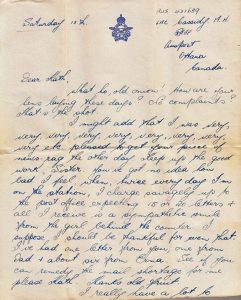 AUS 431689
LAC Cassidy R.H.
Saturday 10th.
Airport
Ottawa
Canada.
Dear Kath,
What ho old onion! How are your
hens laying these days? No complaints?
that's the shot.
I might add that I was very,
very, very, very, very, very, very, very,
very etc pleased to get your piece of
news rag the other day. Keep up the good
work, Sister. You've got no idea how
bad I feel when, twice every day I'm
on the station, I charge up to
the post office expecting 15 or 20 letters &
all I receive is a sympathetic smile
from the girl behind the counter. I
suppose I should be thankful for even that.
I've had one letter from you, one from
Dad & about one from Erna. See if you
can remedy the mail shortage for me
please Kath. Thanks old fruit.
I really have a lot to